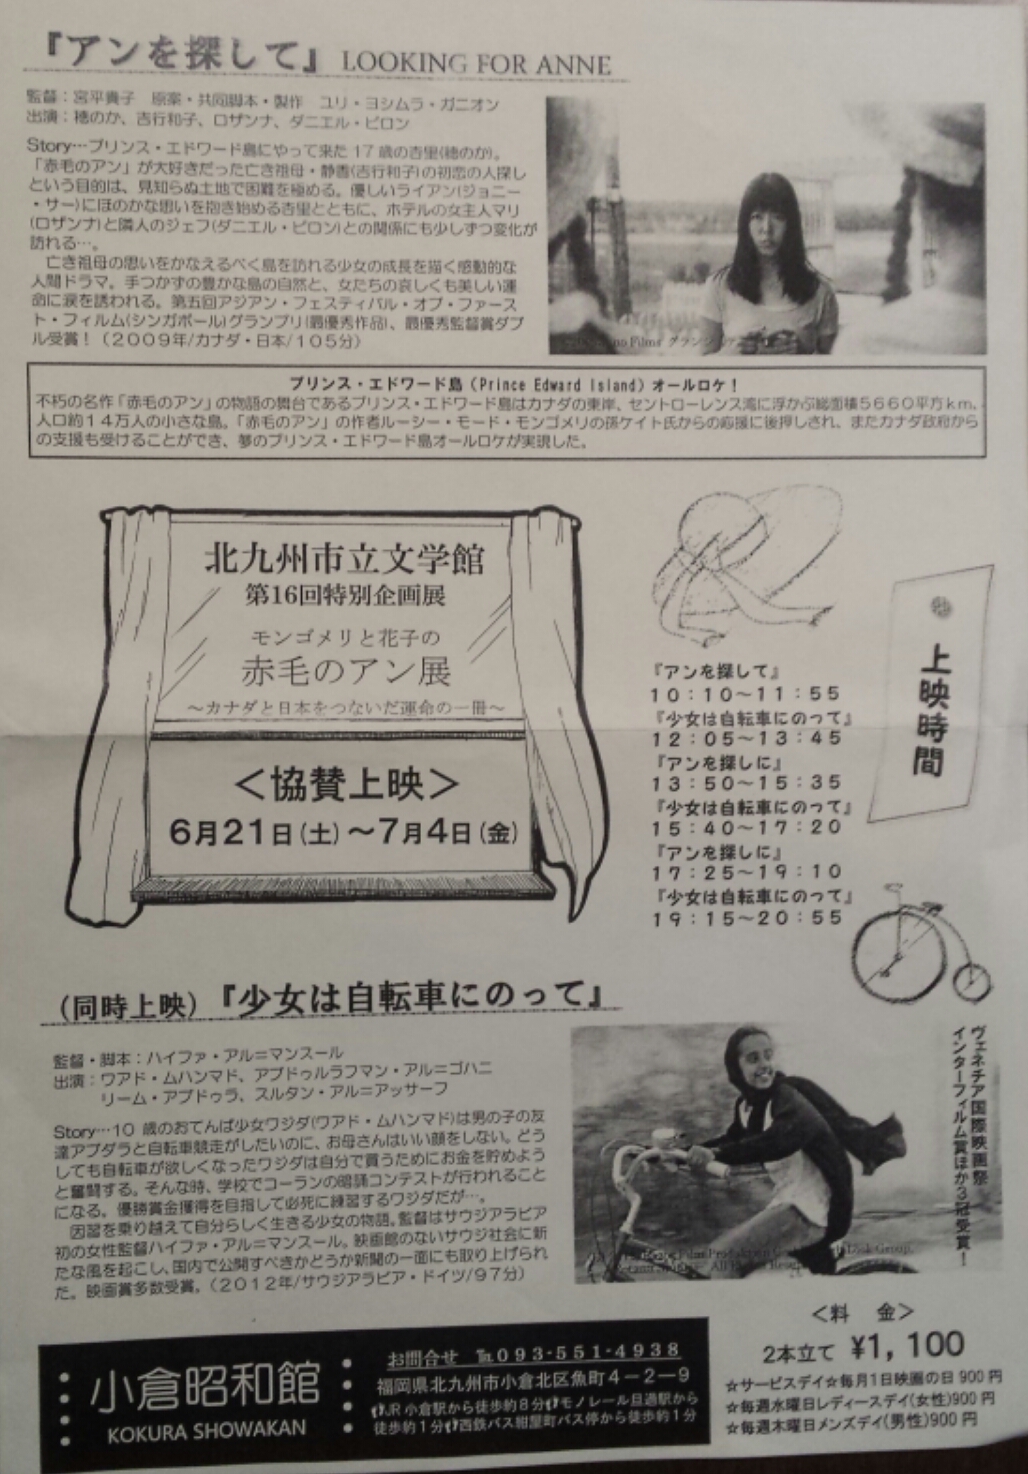 『アンを探して』 LOOKING FOR ANNE
監督：宮平貴子　原案・共同脚本・製作　ユリ・ヨシムラ・ガニオン
出演：穂のか、吉行和子、ロザンナ、ダニエル・ピロン
Story…プリンス・エドワード島にやって来た17歳の杏里(穂のか)。
「赤毛のアン」が大好きだった亡き祖母・静香(吉行和子)の初恋の人探し
という目的は、見知らぬ土地で困難を極める。優しいライアン(ジョニー
・サー)にほのかな思いを抱き始める杏里とともに、ホテルの女主人マリ
(ロザンナ)と隣人のジェフ(ダニエル・ピロン)との関係にも少しずつ変化が
訪れる…。
亡き祖母の思いをかなえるべく島を訪れる少女の成長を描く感動的な
人間ドラマ。手つかずの豊かな島の自然と、女たちの哀しくも美しい運
命に涙を誘われる。第五回アジアン・フェスティバル・オブ・ファース
ト・フィルム(シンガポール)グランプリ(最優秀作品)、最優秀監督賞ダブ
ル受賞！（2009年/カナダ・日本/105分）
Films グランシ
プリンス・エドワード島（Prince Edward Island）オールロケ！
不朽の名作「赤毛のアン」の物語の舞台であるプリンス・エドワード島はカナダの東岸、セントローレンス湾に浮かぶ総面積5660平方km、
人口約14万人の小さな島。「赤毛のアン」の作者ルーシー・モード・モンゴメリの孫ケイト氏からの応援に後押しされ、またカナダ政府から
の支援も受けることができ、夢のプリンス・エドワード島オールロケが実現した。
北九州市立文学館
第16回特別企画展
モンゴメリと花子の
赤毛のアン展
～カナダと日本をつないだ運命の一冊～
＜協賛上映＞
6月21日（土）～7月4日（金）
上映時間
『アンを探して』
10：10～11：55
『少女は自転車にのって』
12：05～13：45
『アンを探しに』
13：50～15：35
『少女は自転車にのって』
15：40～17：20
『アンを探しに』
17：25～19：10
『少女は自転車にのって』
19：15～20：55
(同時上映)『少女は自転車にのって』
監督・脚本：ハイファ・アル＝マンスール
出演：ワアド・ムハンマド、アブドゥルラフマン・アル＝ゴハニ
リーム・アブドゥラ、スルタン・アル＝アッサーフ
Story…10 歳のおてんば少女ワジダ(ワアド・ムハンマド)は男の子の友
達アブダラと自転車競走がしたいのに、お母さんはいい顔をしない。どう
しても自転車が欲しくなったワジダは自分で買うためにお金を貯めよう
と奮闘する。そんな時、学校でコーランの暗誦コンテストが行われること
になる。優勝賞金獲得を目指して必死に練習するワジダだが…。
因習を乗り越えて自分らしく生きる少女の物語。監督はサウジアラビア
初の女性監督ハイファ・アル＝マンスール。映画館のないサウジ社会に新
たな風を起こし、国内で公開すべきかどうか新聞の一面にも取り上げられ
た。映画賞多数受賞。（2012年/サウジアラビア・ドイツ/97分）
ヴェネチア国際映画祭
インターフィルム賞ほか3冠受賞！
＜料　金＞
2本立て ￥1,100
☆サービスデイ☆毎月1日映画の日 900 円
☆毎週水曜日レディースデイ(女性)900 円
☆毎週木曜日メンズデイ(男性)900 円
小倉昭和館
KOKURA SHOWAKAN
お問合せ ℡093-551-4938
福岡県北九州市小倉北区魚町4－2－9
JR小倉駅から徒歩約8分 モノレール旦過駅から
徒歩約1分 西鉄バス紺屋町バス停から徒歩約1分